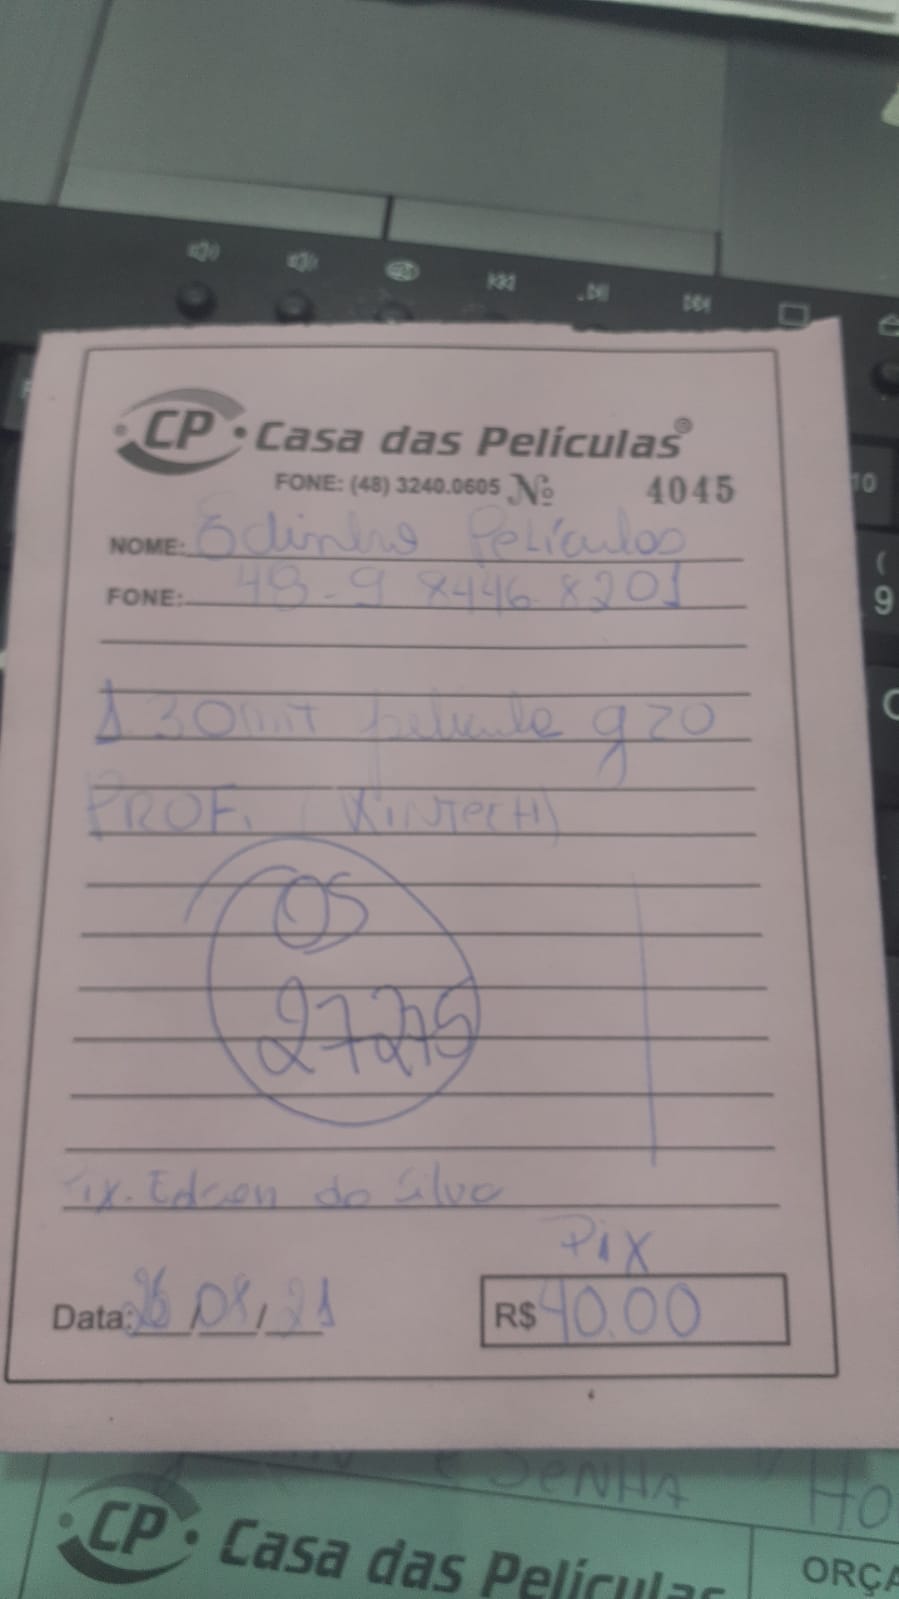 CP Casa das Películas®
FONE: (48) 3240.0605 Nº 4045
NOME: Edinho Películas
FONE: 48-9 8446 8201
1 30mt película g20
PROF. (XINTECH)
OS
27275
Pix. Edson da Silva
Pix
Data: 26/08/21 R$ 40.00
SENHA HO
CP Casa das Películas
ORÇA
10
(
9